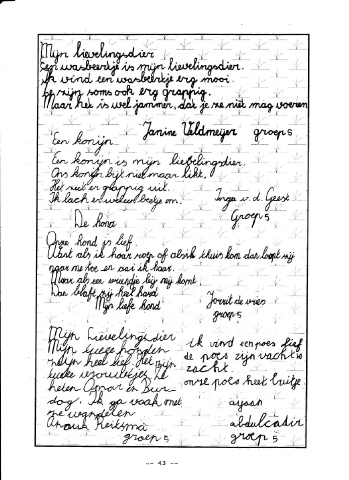 Mijn lievelingsdier
Een wasbeertje is mijn lievelingsdier.
Ik vind een wasbeertje erg mooi.
Ze zijn soms ook erg grappig.
Maar het is wel jammer, dat je ze niet mag voeren
Janine Veldmeijer groep 5
Een konijn
Een konijn is mijn lievelingsdier.
Ons konijn bijt niet maar likt.
Het ziet er grappig uit.
Ik lach er weleens om.
Inge v.d. Geest
Groep 5
De hond
Onze hond is lief.
Want als ik haar roep of als ik thuis kom dan loopt zij
naar me toe en aai ik haar.
Maar als een vriendje bij mij komt
Dan blaft zij heel hard
Mijn lieve hond
Jorrit de vries
groep 5
Mijn Lievelingsdier
Mijn twee honden
zijn heel lief. Het zijn
heten Omar en Bur
dog. Ik ga vaak met
ze wandelen
Anouk Reitsma
groep 5
ik vind een poes lief
de poes zijn vacht is
zacht.
onze poes heet
ayaan
abdulcadir
groep 5
-- 43 --